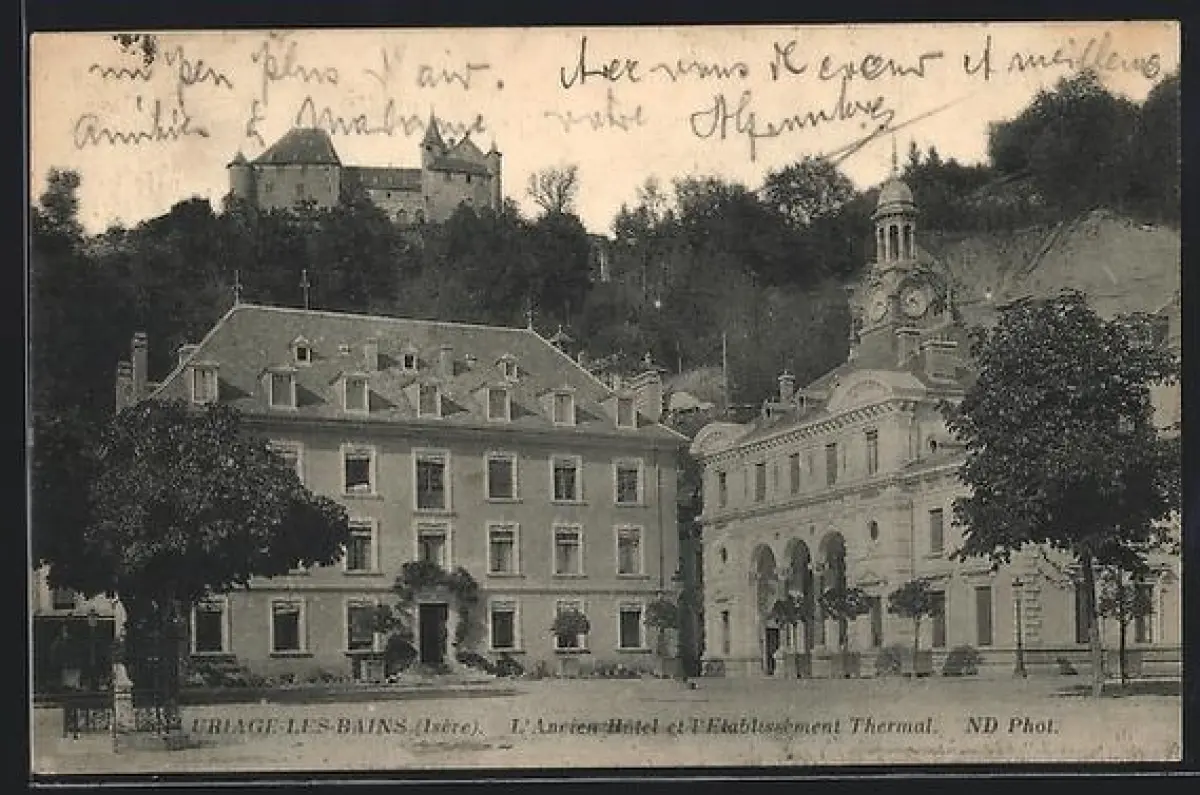 un peu plus d'air. A
vous de cœur et meilleures
Amitiés à Madame votre
URIAGE-LES-BAINS (Isère). L'Ancien Hôtel et l'Etablissement Thermal. ND Phot.